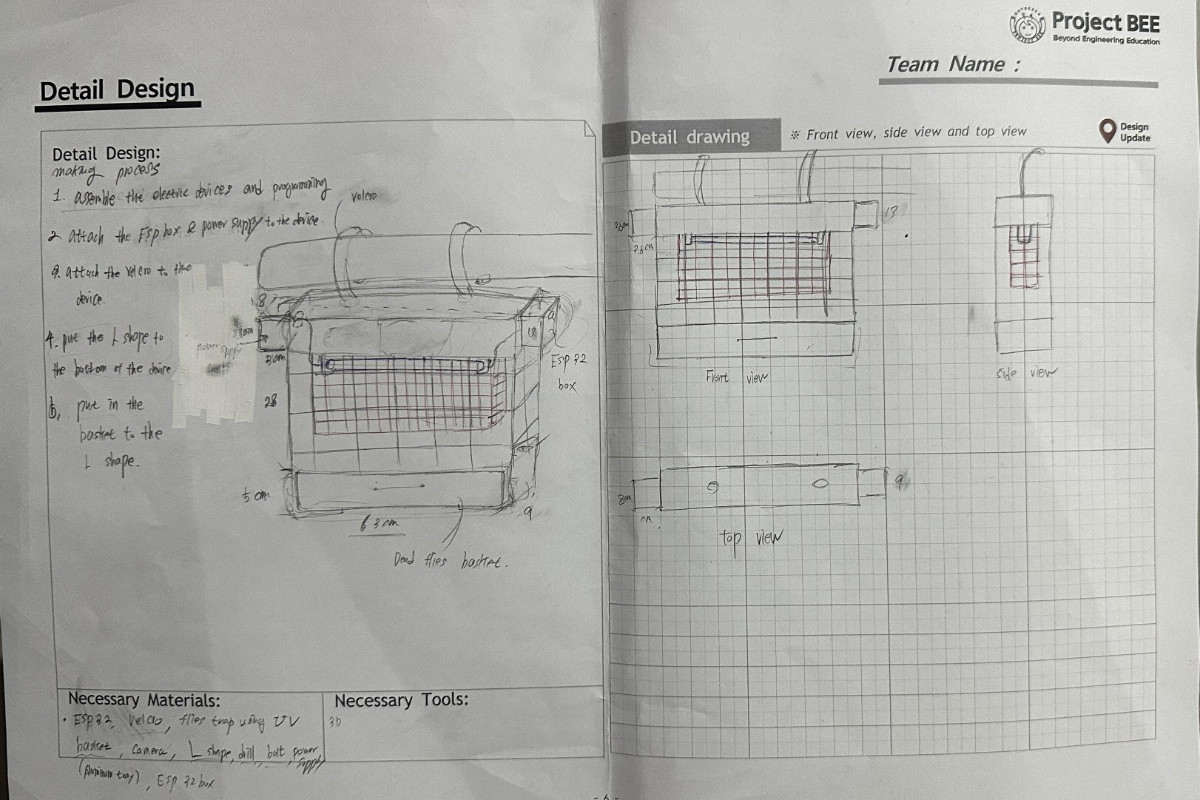 Project BEE
Beyond Engineering Education
Team Name :
Detail Design
Detail Design:
making process
1. assemble the electric devices and programming
2. attach the Esp box & power supply to the device
3. attach the velcro to the
device.
4. put the L shape to
the bottom of the device
5, put in the
basket to the
L shape.
velcro
8
power supply
5cm
28
Esp 32
box
5 cm
63cm
9
Dead flies basket.
Necessary Materials:
• Esp32, Velcro, flies trap using UV
basket, camera, L shape, drill, bolt, power
supply
(Aluminum tray), Esp 32 box
Necessary Tools:
3D
Detail drawing
※ Front view, side view and top view
Design
Update
13
Front view
side view
8cm
9
top view
- 6 -